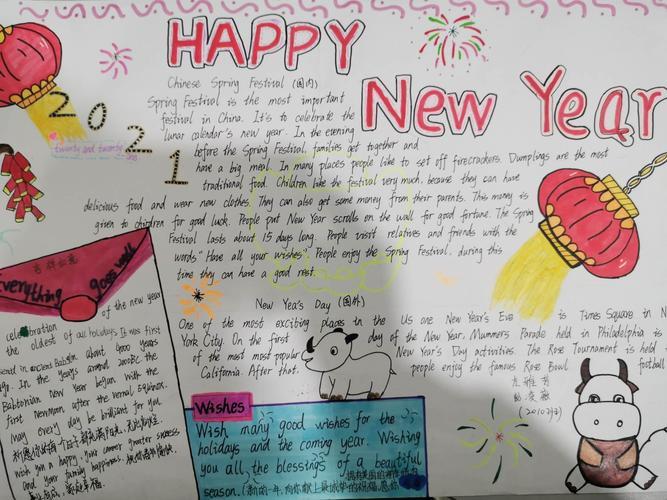 HAPPY
New Year
2021
twenty and twenty
one
Chinese Spring Festival (国内)
Spring Festival is the most important
festival in China. It's to celebrate the
lunar calendar's new year. In the evening
before the Spring Festival, families get together and
have a big meal. In many places people like to set off firecrackers. Dumplings are the most
traditional food. Children like the festival very much, because they can have
delicious food and wear new clothes. They can also get some money from their parents. This money is
given to children for good luck. People put New Year scrolls on the wall for good fortune. The Spring
Festival lasts about 15 days long. People visit relatives and friends with the
words "Have all your wishes". People enjoy the Spring Festival, during this
time they can have a good rest.
New Year's Day (国外)
One of the most exciting places in the Us one New Year's Eve is Times Square in N
York City. On the first day of the New Year, Mummers Parade held in Philadelphia is
of the most most popular New Year's Day activities. The Rose Tournament is held
California. After that, people enjoy the famous Rose Bowl football
吉祥如意
Everything goes well
celebration of the new year
the oldest of all holidays. It was first
in ancient Babylon about 4000 years
ago. In the years around 2000BC, the
Babylonian New Year began with the
first New moon after the vernal equinox.
May every day be brilliant for you.
wish you a happy, your career greater success
and your family happiness.
Wishes
Wish many good wishes for the
holidays and the coming year. Wishing
you all the blessings of a beautiful
season. (新的一年,向你献上最诚挚的祝福,愿你